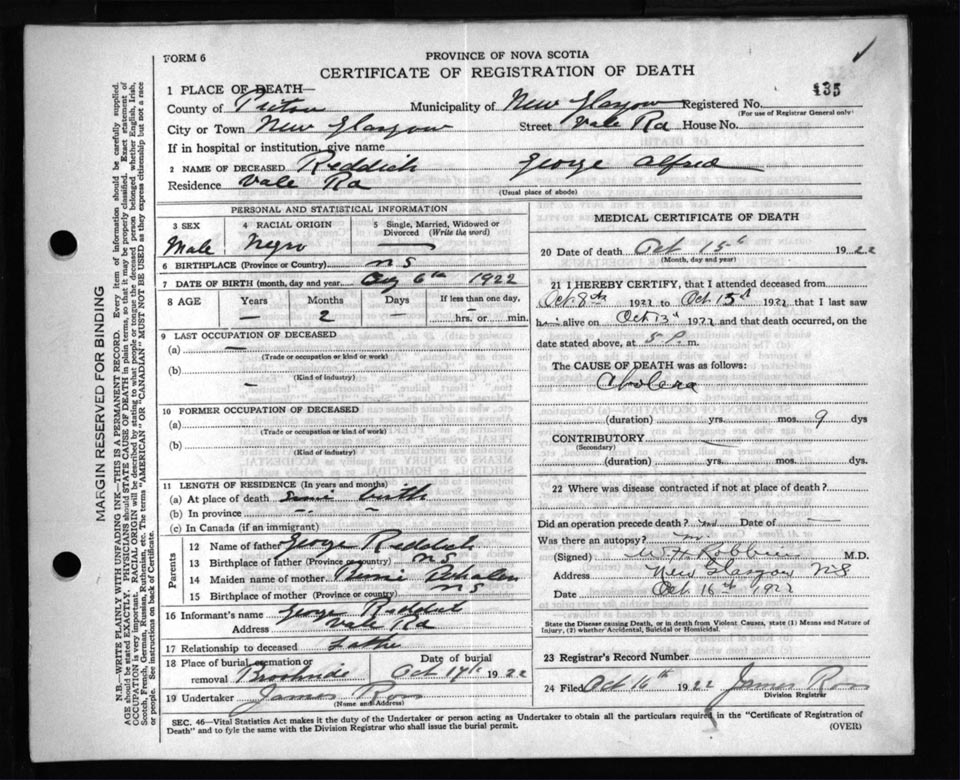 FORM 6
PROVINCE OF NOVA SCOTIA
CERTIFICATE OF REGISTRATION OF DEATH
435
1 PLACE OF DEATH—
County of Pictou Municipality of New Glasgow Registered No.
(For use of Registrar General only)
City or Town New Glasgow Street Vale Rd House No.
If in hospital or institution, give name
2 NAME OF DECEASED Reddick George Alfred
Residence Vale Rd
(Usual place of abode)
PERSONAL AND STATISTICAL INFORMATION
3 SEX 4 RACIAL ORIGIN 5 Single, Married, Widowed or Divorced (Write the word)
Male Negro —
6 BIRTHPLACE (Province or Country) N S
7 DATE OF BIRTH (month, day and year) 6th 1922
8 AGE Years Months Days If less than one day,
— 2 — — hrs. or min.
9 LAST OCCUPATION OF DECEASED
(a) —
(Trade or occupation or kind or work)
(b) —
(Kind of industry)
10 FORMER OCCUPATION OF DECEASED
(a)
(Trade or occupation or kind of work)
(b)
(Kind of Industry)
11 LENGTH OF RESIDENCE (In years and months)
(a) At place of death Since birth
(b) In province
(c) In Canada (if an immigrant)
Parents
12 Name of father George Reddick
13 Birthplace of father (Province or country) N S
14 Maiden name of mother
15 Birthplace of mother (Province or country) N S
16 Informant's name George Reddick
Address Vale Rd
17 Relationship to deceased Father
18 Place of burial, cremation or removal Brookside Date of burial Oct 17th 1922
19 Undertaker James Ross
(Name and Address)
MEDICAL CERTIFICATE OF DEATH
20 Date of death Oct 15th 1922
(Month, day and year)
21 I HEREBY CERTIFY, that I attended deceased from
Oct 8th 1922 to Oct 15th 1922 that I last saw
alive on Oct 13th 1922 and that death occurred, on
date stated above, at P. m.
The CAUSE OF DEATH was as follows:
Cholera
(duration) yrs. mos. 9 dys
CONTRIBUTORY —
(Secondary)
(duration) yrs. mos. dys.
22 Where was disease contracted if not at place of death?
Did an operation precede death? Date of —
Was there an autopsy?
(Signed) W H Robbins M.D.
Address New Glasgow NS
Date Oct 16th 1922
State the Disease causing Death, or in death from Violent Causes, state (1) Means and Nature of Injury, (2) whether Accidental, Suicidal or Homicidal.
23 Registrar's Record Number
24 Filed Oct 16th 1922 James Ross
Division Registrar
SEC. 46—Vital Statistics Act makes it the duty of the Undertaker or person acting as Undertaker to obtain all the particulars required in the "Certificate of Registration of
Death" and to fyle the same with the Division Registrar who shall issue the burial permit.
(OVER)
MARGIN RESERVED FOR BINDING
N.B.—WRITE PLAINLY WITH UNFADING INK—THIS IS A PERMANENT RECORD. Every item of information should be carefully supplied.
AGE should be stated EXACTLY. PHYSICIANS should STATE CAUSE OF DEATH in plain terms, so that it may be properly classified. Exact statement of
OCCUPATION is very important. RACIAL ORIGIN will be described by stating to what people or tongue the deceased person belonged whether English, Irish,
Scotch, French, German, Russian, Ruthenian, etc. The terms "AMERICAN" OR "CANADIAN" MUST NOT BE USED as they express citizenship but not a race
or people. See instructions on back of Certificate.